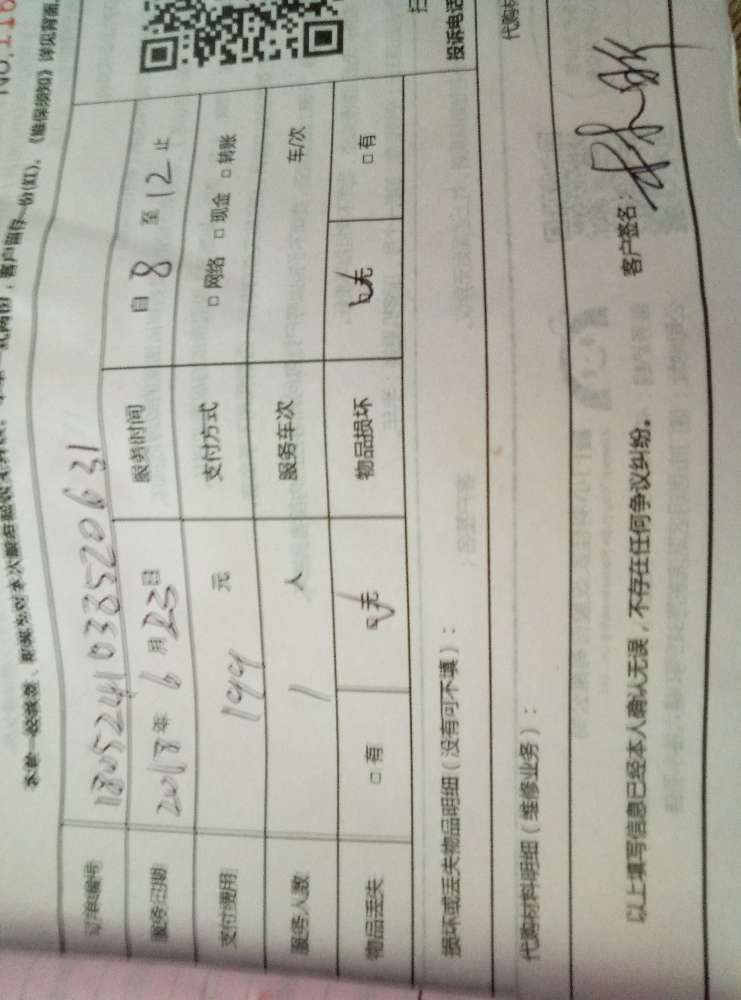 NO.116
本单一经
份(红)。《维保须知》详见背面。
投诉电话
订单编号 180524103852063 1
服务日期 2018年 6月 23日 服务时间 自 8 至 12 止
支付费用 199 元 支付方式 □ 网络 □ 现金 □ 转账
服务人数 1 人 服务车次 车/次
物品丢失 □ 有 ☑ 无 物品损坏 ☑ 无 □ 有
损坏或丢失物品明细（没有可不填）：
代购材料明细（维修业务）：
以上填写信息已经本人确认无误，不存在任何争议纠纷。 客户签名：